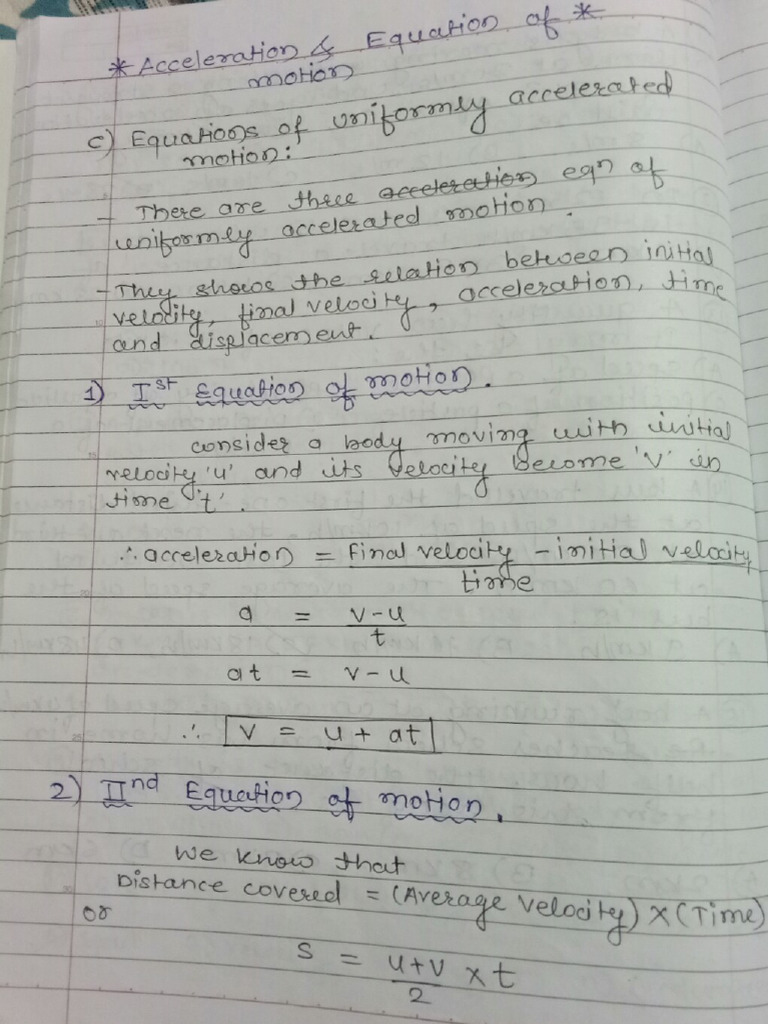 * Acceleration & Equation of *
motion
c) Equations of uniformly accelerated
motion:
- There are three acceleration eqn of
uniformly accelerated motion.
- They shows the relation between initial
velocity, final velocity, acceleration, time
and displacement.
1) Ist Equation of motion.
consider a body moving with initial
velocity 'u' and its velocity become 'v' in
time 't'.
∴ acceleration = Final velocity - initial velocity
time
a = v-u
t
at = v-u
∴ v = u + at
2) IInd Equation of motion.
We know that
Distance covered = (Average Velocity) x (Time)
or
s = u+v x t
2